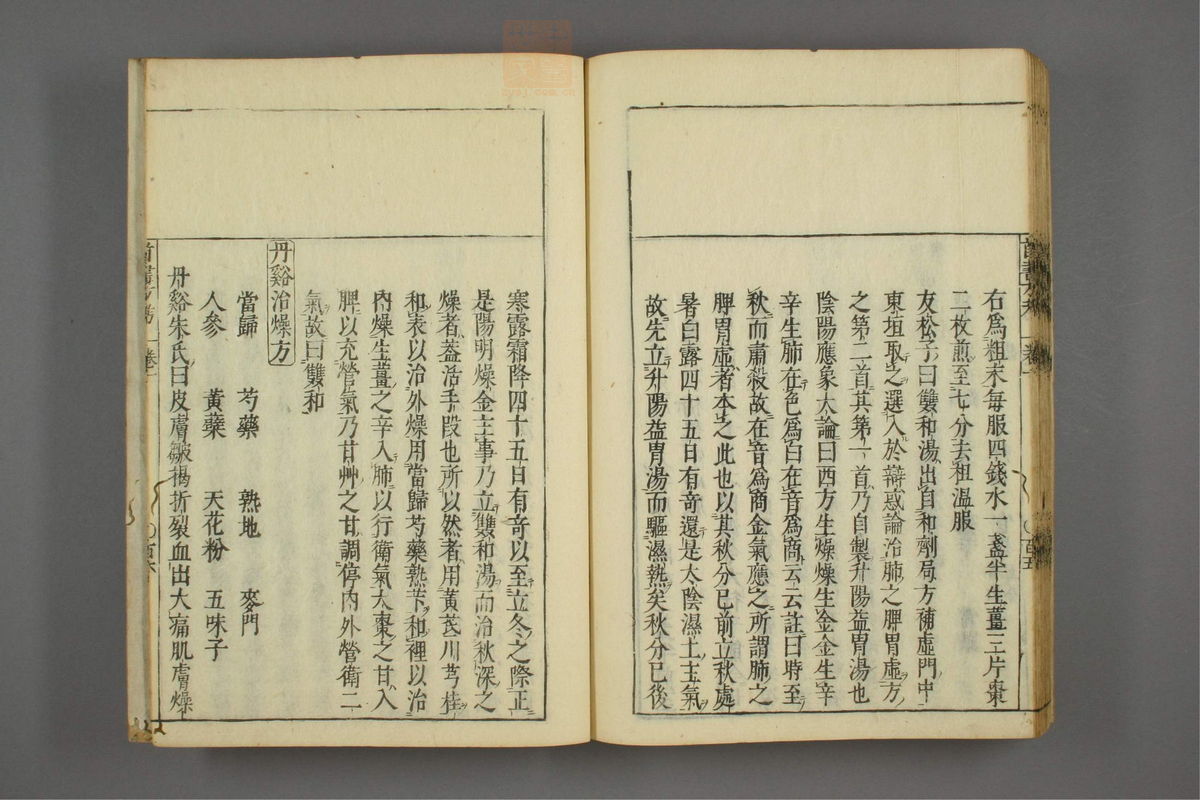 右爲粗末每服四錢水一盞半生薑三片棗
二枚煎至七分去粗溫服
友松子曰雙和湯出自和劑局方補虛門中
東垣取之選入於辯惑論治肺之脾胃虛方
之第二首其第一首乃自製升陽益胃湯也
陰陽應象大論曰西方生燥燥生金金生辛
辛生肺在色爲白在音爲商云云註曰時至
秋而肅殺故在音爲商金氣應之所謂肺之
脾胃虛者本之此也以其秋分已前立秋處
暑白露四十五日有奇還是太陰濕土主氣
故先立升陽益胃湯而驅濕熱矣秋分已後
寒露霜降四十五日有奇以至立冬之際正
是陽明燥金主事乃立雙和湯而治秋深之
燥者蓋活手段也所以然者用黃芪川芎桂
和表以治外燥用當歸芍藥熟芐和裡以治
內燥生薑之辛入肺以行衛氣大棗之甘入
脾以充營氣乃甘艸之甘調停內外營衛二
氣故曰雙和
丹谿治燥方
當歸 芍藥 熟地 麥門
人參 黃蘗 天花粉 五味子
丹谿朱氏曰皮膚皴揭折裂血出大痛肌膚燥